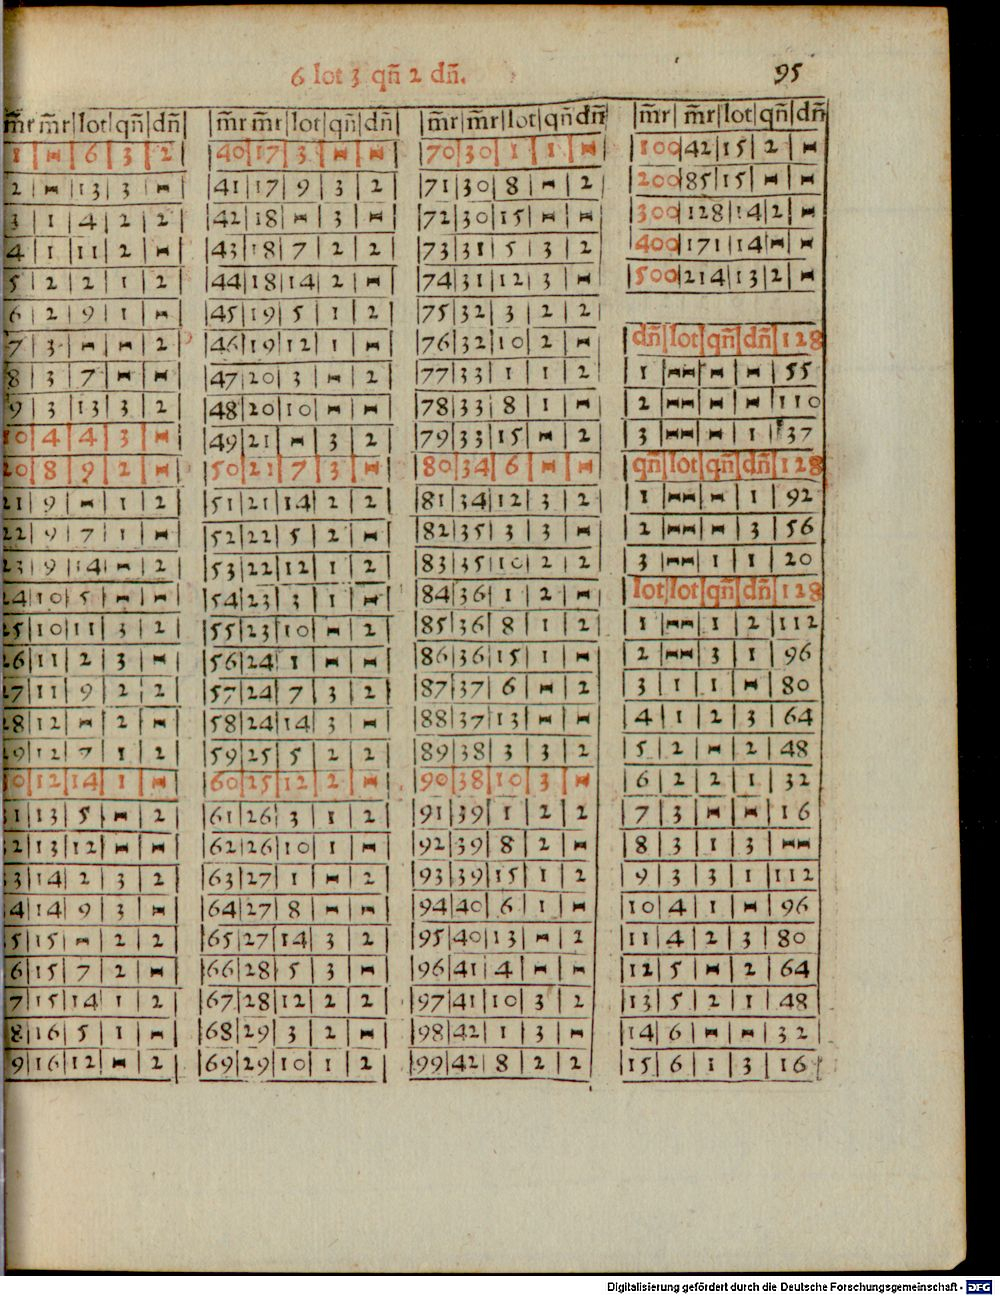 6 lot 3 qñ 2 dñ.
95
m̃r m̃r lot qñ dñ
1 - 6 3 2
2 - 13 3 -
3 1 4 2 2
4 1 11 2 -
5 2 2 1 2
6 2 9 1 -
7 3 - - 2
8 3 7 - -
9 3 13 3 2
10 4 4 3 -
20 8 9 2 -
21 9 - 1 2
22 9 7 1 -
23 9 14 - 2
24 10 5 - -
25 10 11 3 2
26 11 2 3 -
27 11 9 2 2
28 12 - 2 -
29 12 7 1 2
0 12 14 1 -
1 13 5 - 2
2 13 12 - -
3 14 2 3 2
4 14 9 3 -
5 15 - 2 2
6 15 7 2 -
7 15 14 1 2
8 16 5 1 -
9 16 12 - 2
m̃r m̃r lot qñ dñ
40 17 3 - -
41 17 9 3 2
42 18 - 3 -
43 18 7 2 2
44 18 14 2 -
45 19 5 1 2
46 19 12 1 -
47 20 3 - 2
48 20 10 - -
49 21 - 3 2
50 21 7 3 -
51 21 14 2 2
52 22 5 2 -
53 22 12 1 2
54 23 3 1 -
55 23 10 - 2
56 24 1 - -
57 24 7 3 2
58 24 14 3 -
59 25 5 2 2
60 25 12 2 -
61 26 3 1 2
62 26 10 1 -
63 27 1 - 2
64 27 8 - -
65 27 14 3 2
66 28 5 3 -
67 28 12 2 2
68 29 3 2 -
69 29 10 1 2
m̃r m̃r lot qñ dñ
70 30 1 1 -
71 30 8 - 2
72 30 15 - -
73 31 5 3 2
74 31 12 3 -
75 32 3 2 2
76 32 10 2 -
77 33 1 1 2
78 33 8 1 -
79 33 15 - 2
80 34 6 - -
81 34 12 3 2
82 35 3 3 -
83 35 10 2 2
84 36 1 2 -
85 36 8 1 2
86 36 15 1 -
87 37 6 - 2
88 37 13 - -
89 38 3 3 2
90 38 10 3 -
91 39 1 2 2
92 39 8 2 -
93 39 15 1 2
94 40 6 1 -
95 40 13 - 2
96 41 4 - -
97 41 10 3 2
98 42 1 3 -
99 42 8 2 2
m̃r m̃r lot qñ dñ
100 42 15 2 -
200 85 15 - -
300 128 14 2 -
400 171 14 - -
500 214 13 2 -
dñ lot qñ dñ 128
1 -- - - 55
2 -- - - 110
3 -- - 1 37
qñ lot qñ dñ 128
1 -- - 1 92
2 -- - 3 56
3 -- 1 1 20
lot lot qñ dñ 128
1 -- 1 2 112
2 -- 3 1 96
3 1 1 - 80
4 1 2 3 64
5 2 - 2 48
6 2 2 1 32
7 3 - - 16
8 3 1 3 --
9 3 3 1 112
10 4 1 - 96
11 4 2 3 80
12 5 - 2 64
13 5 2 1 48
14 6 - - 32
15 6 1 3 16
Digitalisierung gefördert durch die Deutsche Forschungsgemeinschaft - DFG